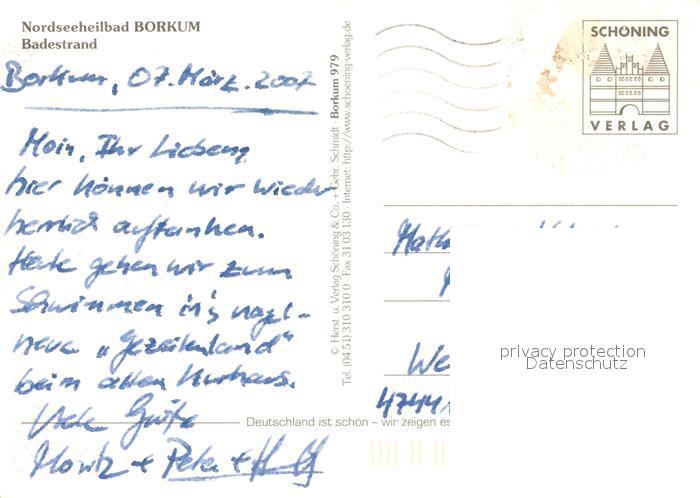 Nordseeheilbad BORKUM
Badestrand
Borkum, 07. März. 2007
Moin, Ihr Lieben,
hier können wir wieder
herrlich auftanken.
Heute gehen wir zum
Schwimmen in's nagel-
neue „Gezeitenland"
beim alten Kurhaus.
Viele Grüße
Moritz + Peter +
© Herst. u. Verlag Schöning & Co. + Gebr. Schmidt Borkum 979
Tel. (04 51) 310 310 0 · Fax 31 03 130 · Internet: http://www.schoening-verlag.de
Deutschland ist schön – wir zeigen es
SCHÖNING
VERLAG
Math
We
47441
privacy protection
Datenschutz